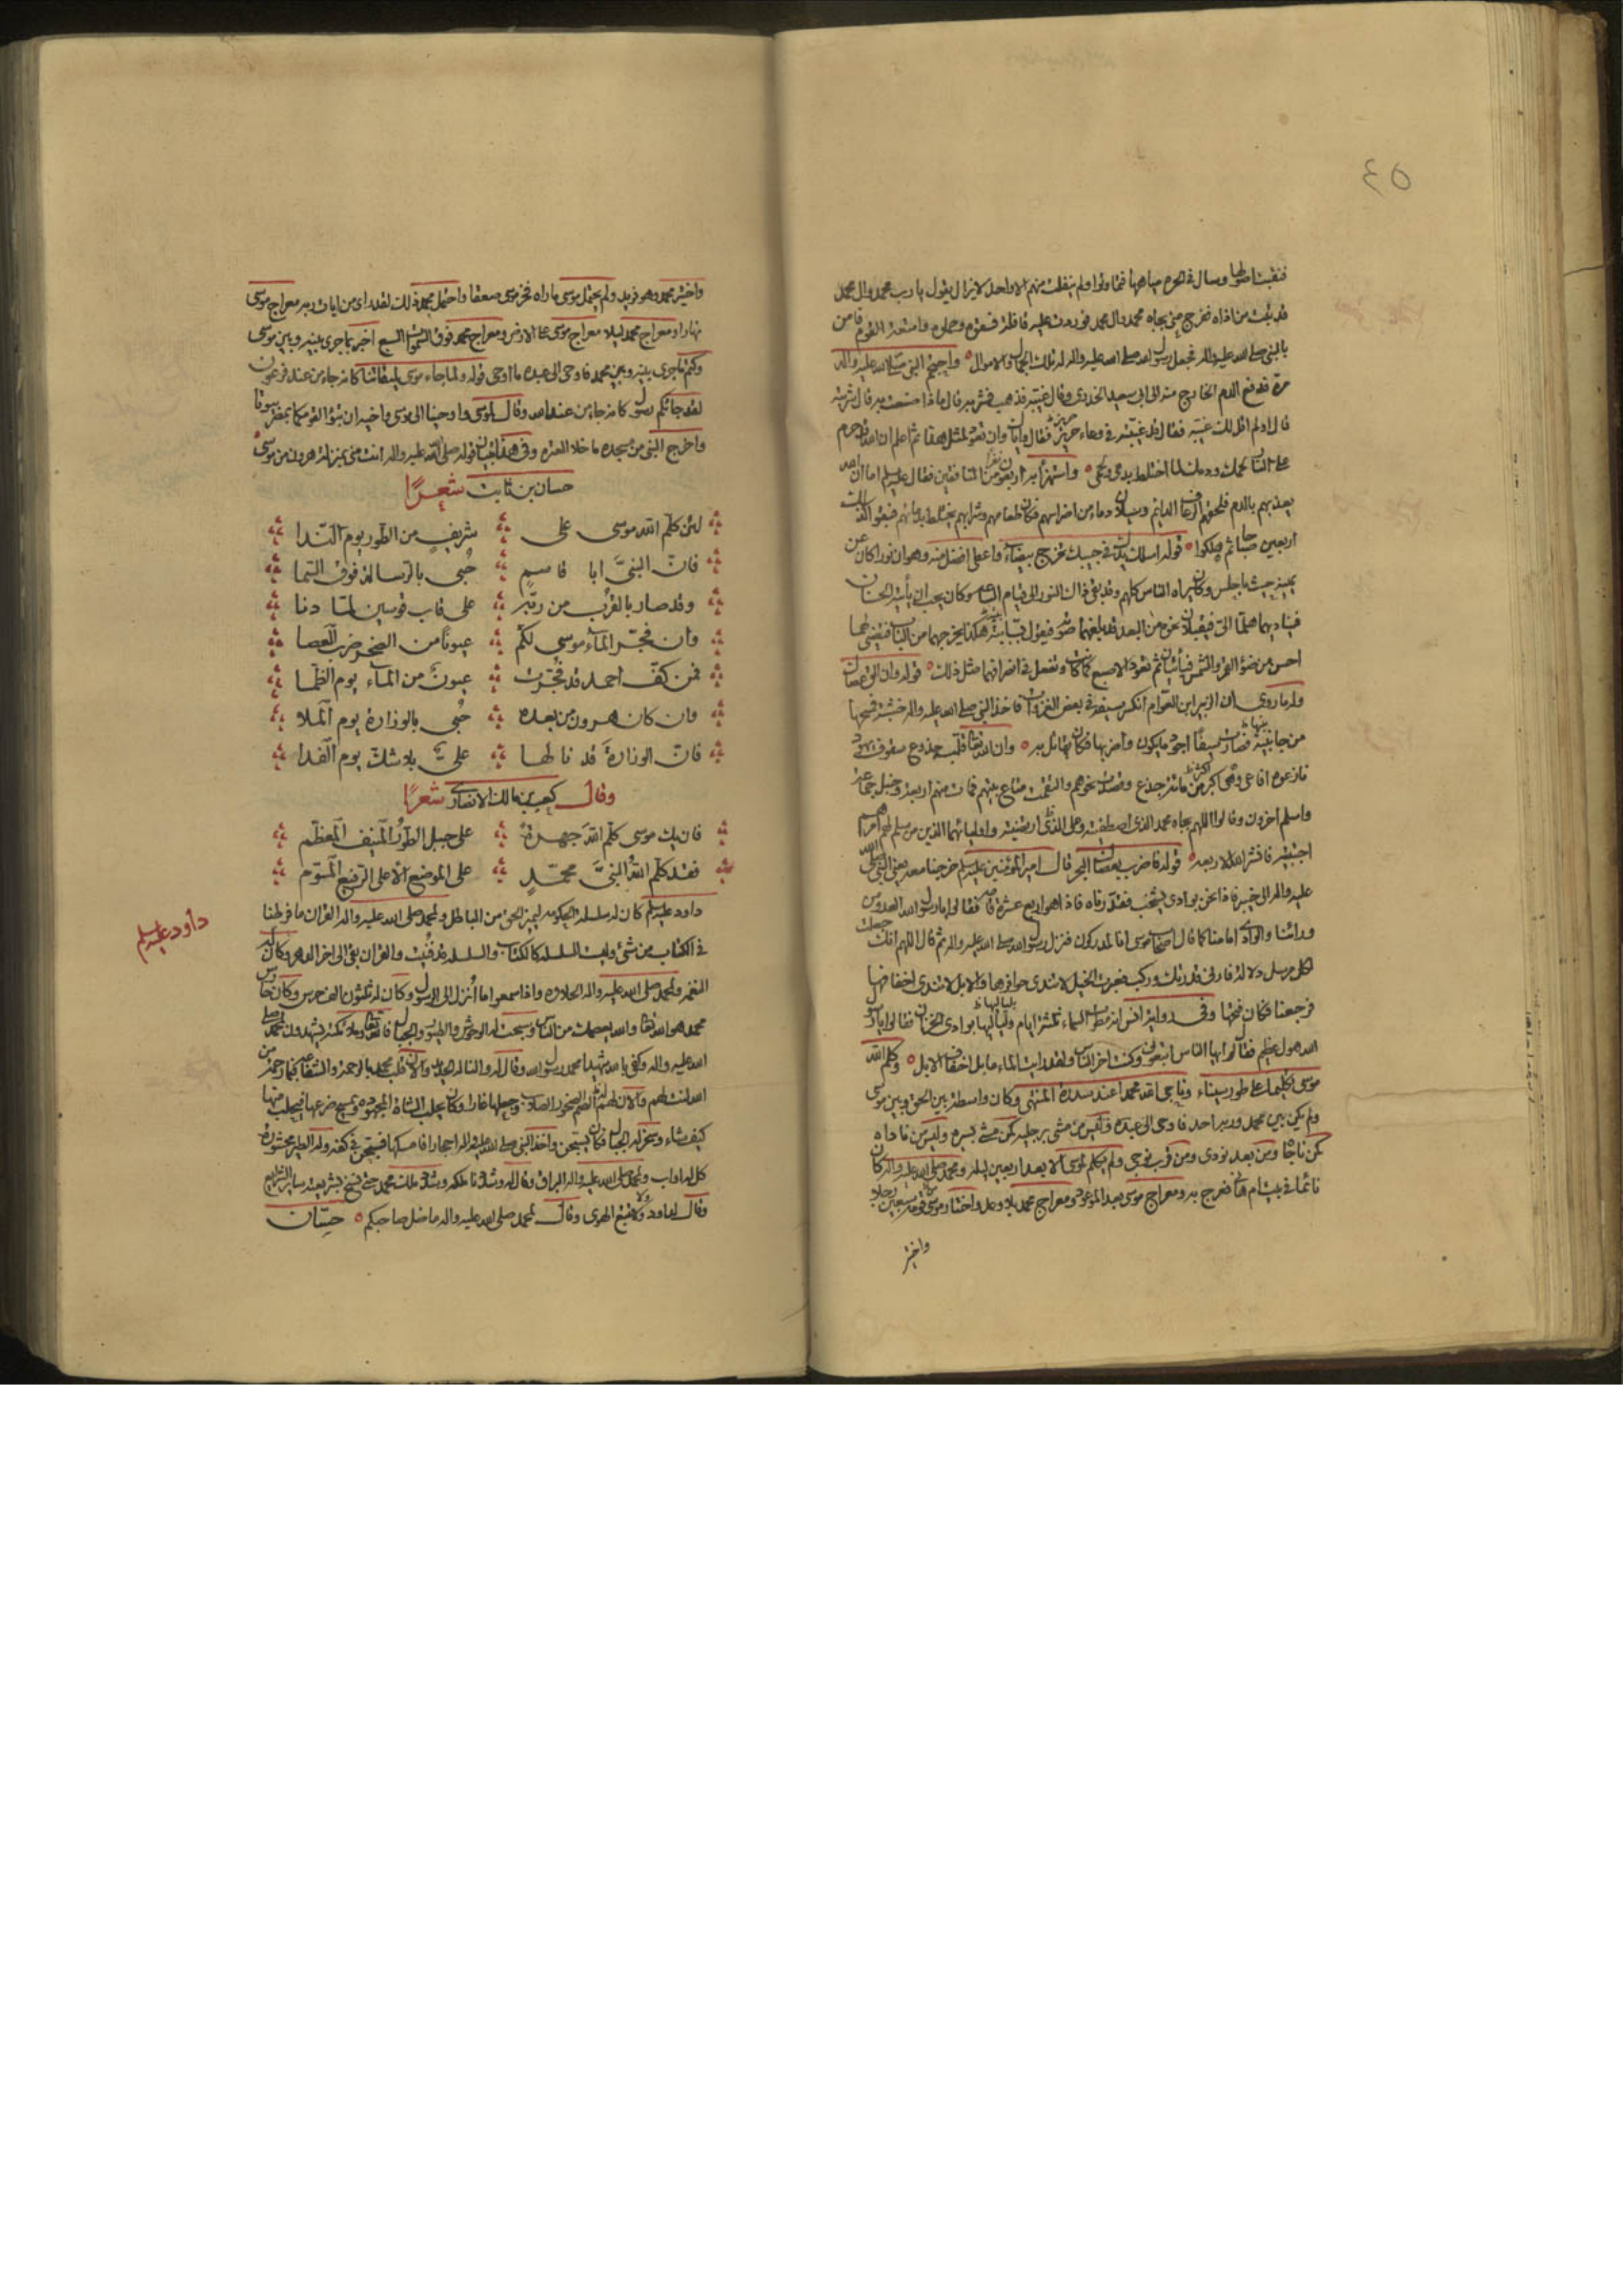 ٤٥
فنقبتاطها وسال في الحرم مياهها فماتوا ولم ينفلت منهم الا واحد لا يزال يقول يا رب محمد وال محمد
قد تبت من اذاه ففرج عني بجاه محمد وال محمد فوردت عليه قافلة فسقوه وحملوه وامتعة القوم فامن
بالنبي صلى الله عليه واله فجعل رسول الله صلى الله عليه واله له تلك الجمال والاموال واحتجم النبي صلى الله عليه واله
مرة فدفع الدم الخارج منه الى ابي سعيد الخدري وقال غيبه فذهب فشربه فقال ماذا صنعت به قال شربته
قال اولم اقل لك غيبه فقال قد غيبته في وعاء حريز فقال واياك وان تعود لمثل هذا ثم اعلم ان الله قد حرم
على النار لحمك ودمك لما اختلط بدمي ولحمي واستهزأ به اربعون نفرا من المنافقين فقال عليه السلم اما ان الله
يعذبهم بالدم فلحقهم الرعاف الدايم وسيلان دماء من اضراسهم فكان طعامهم وشرابهم يختلط بدمائهم فبقوا كذلك
اربعين صباحا ثم هلكوا قوله اسلك يدك في جيبك تخرج بيضاء واعطى افضل منه وهو ان نورا كان عن
يمينه حيث ما جلس وكان يراه الناس كلهم وقد بقي ذلك النور الى قيام الساعة وكان يحب ان يأتيه الحسنان
فيناديهما هلما الي فيقبلان نحوه من البعد قد بلغهما صوته فيقول بسبابته هكذا يخرجهما من الباب فتضيء لهما
احسن من ضوء القمر والشمس فيأتيان ثم تعود الاصبع كما كانت وتفعل في انصرافهما مثل ذلك قوله وان الق عصاك
وله ما روي ان الزبير ابن العوام انكسر سيفه في بعض الغزوات فاخذ النبي صلى الله عليه واله خشبة فمسحها
من جانبيه فصارت سيفا اجود ما يكون واضربها فكان يقاتل به وان الله تعالى قلب جذوع سقوف يهود
نازعوه افاعي وهي اكثر من مائة جذع وقصدت نحوهم والتقمت متاع بيتهم فمات منهم اربعة وخبل جماعة
واسلم اخرون وقالوا اللهم بجاه محمد الذي اصطفيته وعلي الذي ارتضيته واوليائهما الذين من سلم لهم امرهم
اجتبيته فانشر الله الاربعة قوله فاضرب بعصاك البحر قال امير المؤمنين عليه السلم خرجنا معه يعني النبي صلى الله
عليه واله الى خيبر فاذا نحن بوادي يشخب فقدرناه فاذا هو اربع عشرة قامة فقالوا يا رسول الله العدو من
ورائنا والوادي امامنا كما قال اصحاب موسى انا لمدركون فنزل رسول الله صلى الله عليه واله ثم قال اللهم انك جعلت
لكل مرسل دلالة فارني قدرتك وركب فعبرت الخيل لا تندى حوافرها والابل لا تندى اخفافها
فرجعنا فكان فتحها وفي رواية انس انه مطرت السماء ثلثة ايام ولياليها بوادي الخزان فقالوا يا رسول
الله هول عظيم فقال ايها الناس اتبعوني وكنت اخر الناس ولقد رايت الماء ما بل اخفاف الابل وكلم الله
موسى تكليما على طور سيناء وناجى الله محمدا عند سدرة المنتهى وكان واسطة بين الحق وبين موسى
ولم يكن بين محمد وربه احد فاوحى الى عبده وليس من مشى برجليه كمن مشى بسره وليس من ناداه
كمن ناجاه ومن بعد نودي ومن قرب نوجي ولم يكلم موسى الا بعد اربعين ليلة ومحمد صلى الله عليه واله كان
نائما في بيت ام هاني فعرج به ومعراج موسى بعد الموعود ومعراج محمد بلا وعد واختار موسى قومه سبعين رجلا
واختير
واختير محمد وهو فريد ولم يحتمل موسى ما راه فخر موسى صعقا واحتمل محمد ذلك لقد راى من ايات ربه معراج موسى
نهارا ومعراج محمد ليلا معراج موسى على الارض ومعراج محمد فوق السموات السبع اخبر بما جرى بينه وبين موسى
وكتم ما جرى بينه وبين محمد فاوحى الى عبده ما اوحى قوله ولما جاء موسى لميقاتنا كانه جاء من عند فرعون
لقد جائكم رسول كانه جاء من عند الله وقال لموسى واوحينا الى موسى واخيه ان تبوءا لقومكما بمصر بيوتا
واخرج النبي من مسجده ما خلا العترة وفي هذا تبيان قوله صلى الله عليه واله انت مني بمنزلة هرون من موسى
حسان بن ثابت شعرًا
لئن كلم الله موسى على شريف من الطور يوم الندا
فان النبي ابا قاسم حُبي بالرسالة فوق السما
وقد صار بالقرب من ربه على قاب قوسين لما دنا
وان فجّر الماء موسى لكم عيونا من الصخر ضرب العصا
فمن كف احمد قد فجرت عيون من الماء يوم الظما
وان كان هرون من بعده حُبي بالوزارة يوم الملا
فان الوزارة قد نالها علي بلا شك يوم الفدا
وقال كعب بن مالك الانصاري شعرًا
فان يك موسى كلم الله جهرة على جبل الطور المنيف المعظم
فقد كلم الله النبي محمد على الموضع الاعلى الرفيع المسوّم
داود عليه السلم
داود عليه السلم كان له سلسلة الحكومة ليميز الحق من الباطل ولمحمد صلى الله عليه واله القران ما فرطنا
في الكتاب من شئ وليست السلسلة كالكتاب والسلسلة قد فنيت والقران بقي الى اخر الدهر وكان له
النغمة ولمحمد صلى الله عليه واله الحلاوة واذا سمعوا ما انزل الى الرسول وكان له ثلثون الف حرس وكان حارس
محمد هو الله تعالى والله يعصمك من الناس وسبحت له الوحوش والطيور والجبال فالله تعالى وملائكته يشهدون لمحمد صلى
الله عليه واله وكفى بالله شهيدا محمد رسول الله وقال له والنا له الحديد والان قلب محمد بالرحمة والشفاعة فبما رحمة من
الله لنت لهم والان لهم الصم الصخور الصلاب وجعلها غارا وكان يحلب الشاة المجهودة ويمسح ضرعها فيحلب منها
كيف شاء وسخر له الجبال فكان يسبحن واخذ النبي صلى الله عليه واله احجارا فامسكها فسبحن في كفه وله الطير محشورة
كل له اواب ولمحمد صلى الله عليه واله البراق وقال له وشددنا ملكه وشدد ملك محمد حتى نسخ بشريعته ساير الشرايع
وقال لداود ولا تتبع الهوى وقال لمحمد صلى الله عليه واله ما ضل صاحبكم حسان